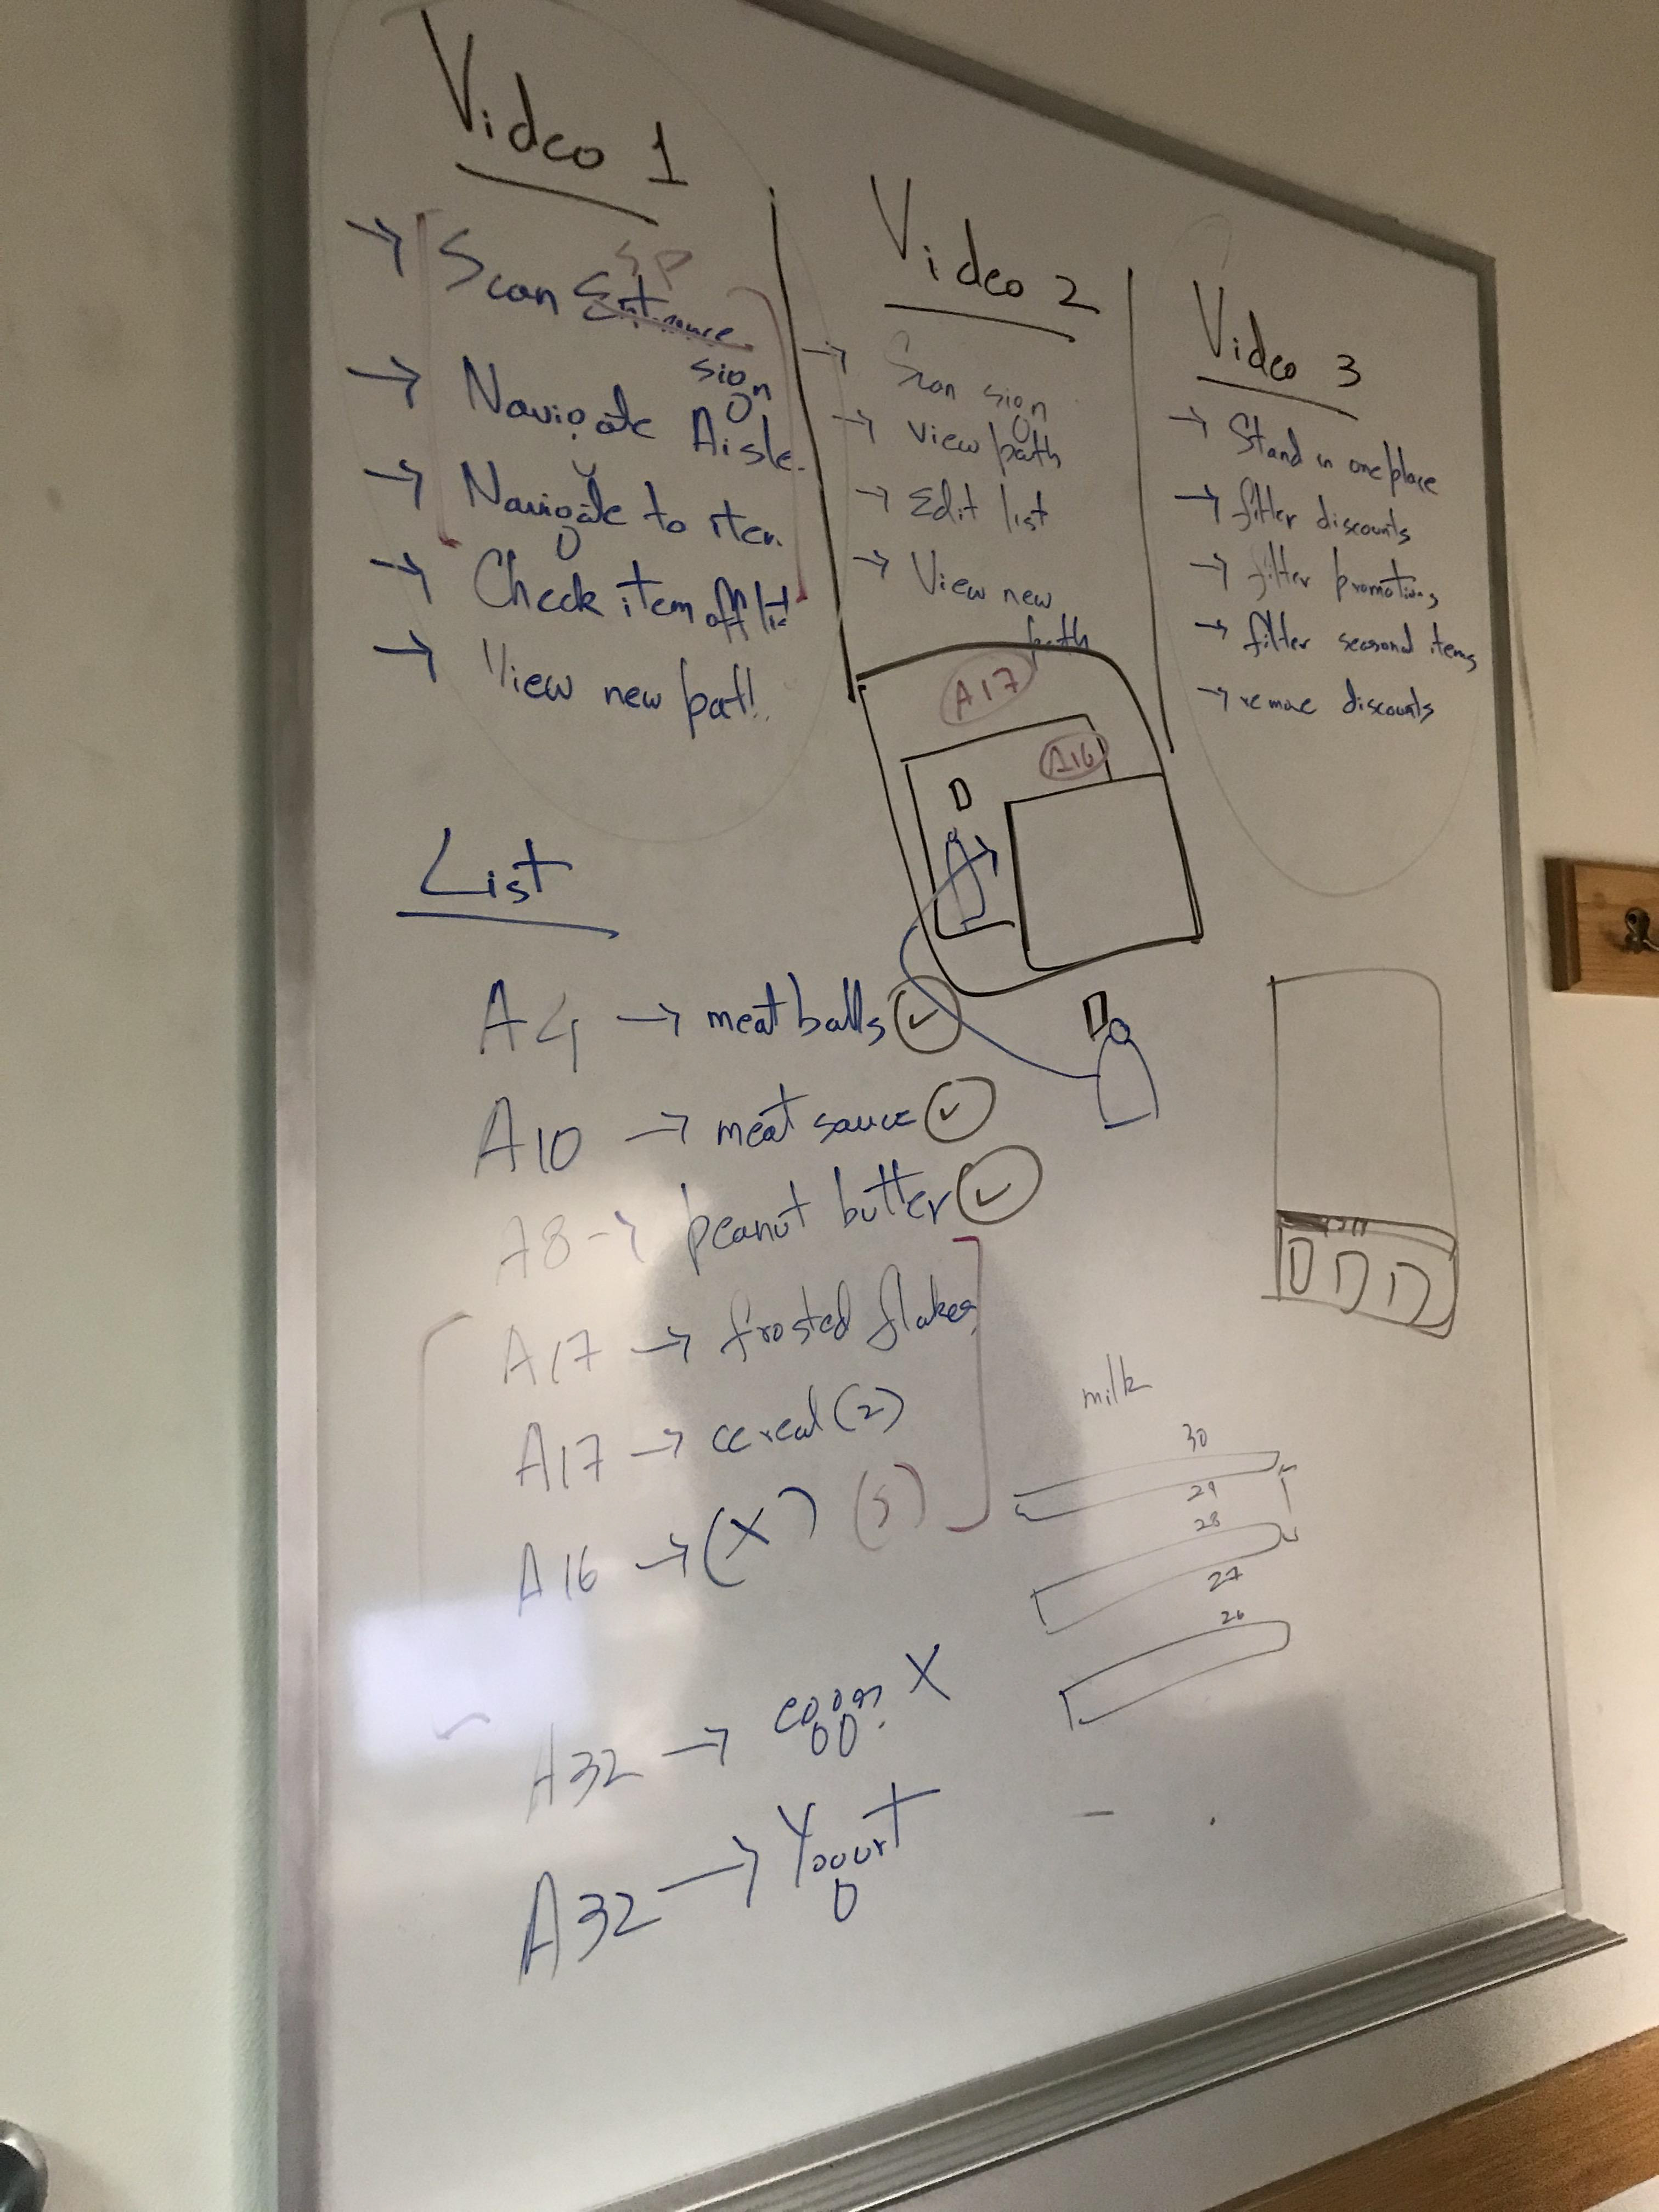 Video 1
SP
Scan Entrance
sign
→ Navigate Aisle
→ Navigate to item
→ Check item off list
→ View new path
Video 2
→ Scan sign
→ View path
→ Edit list
→ View new
path
Video 3
→ Stand in one place
→ filter discounts
→ filter promotions
→ filter seasonal items
→ remove discounts
A17
A16
List
A4 → meat balls ✓
A10 → meat sauce ✓
A8 → peanut butter ✓
A17 → frosted flakes
A17 → cereal (2)
A16 → (X) (S)
A32 → eggs X
A32 → Yogurt
milk
30
29
28
27
26